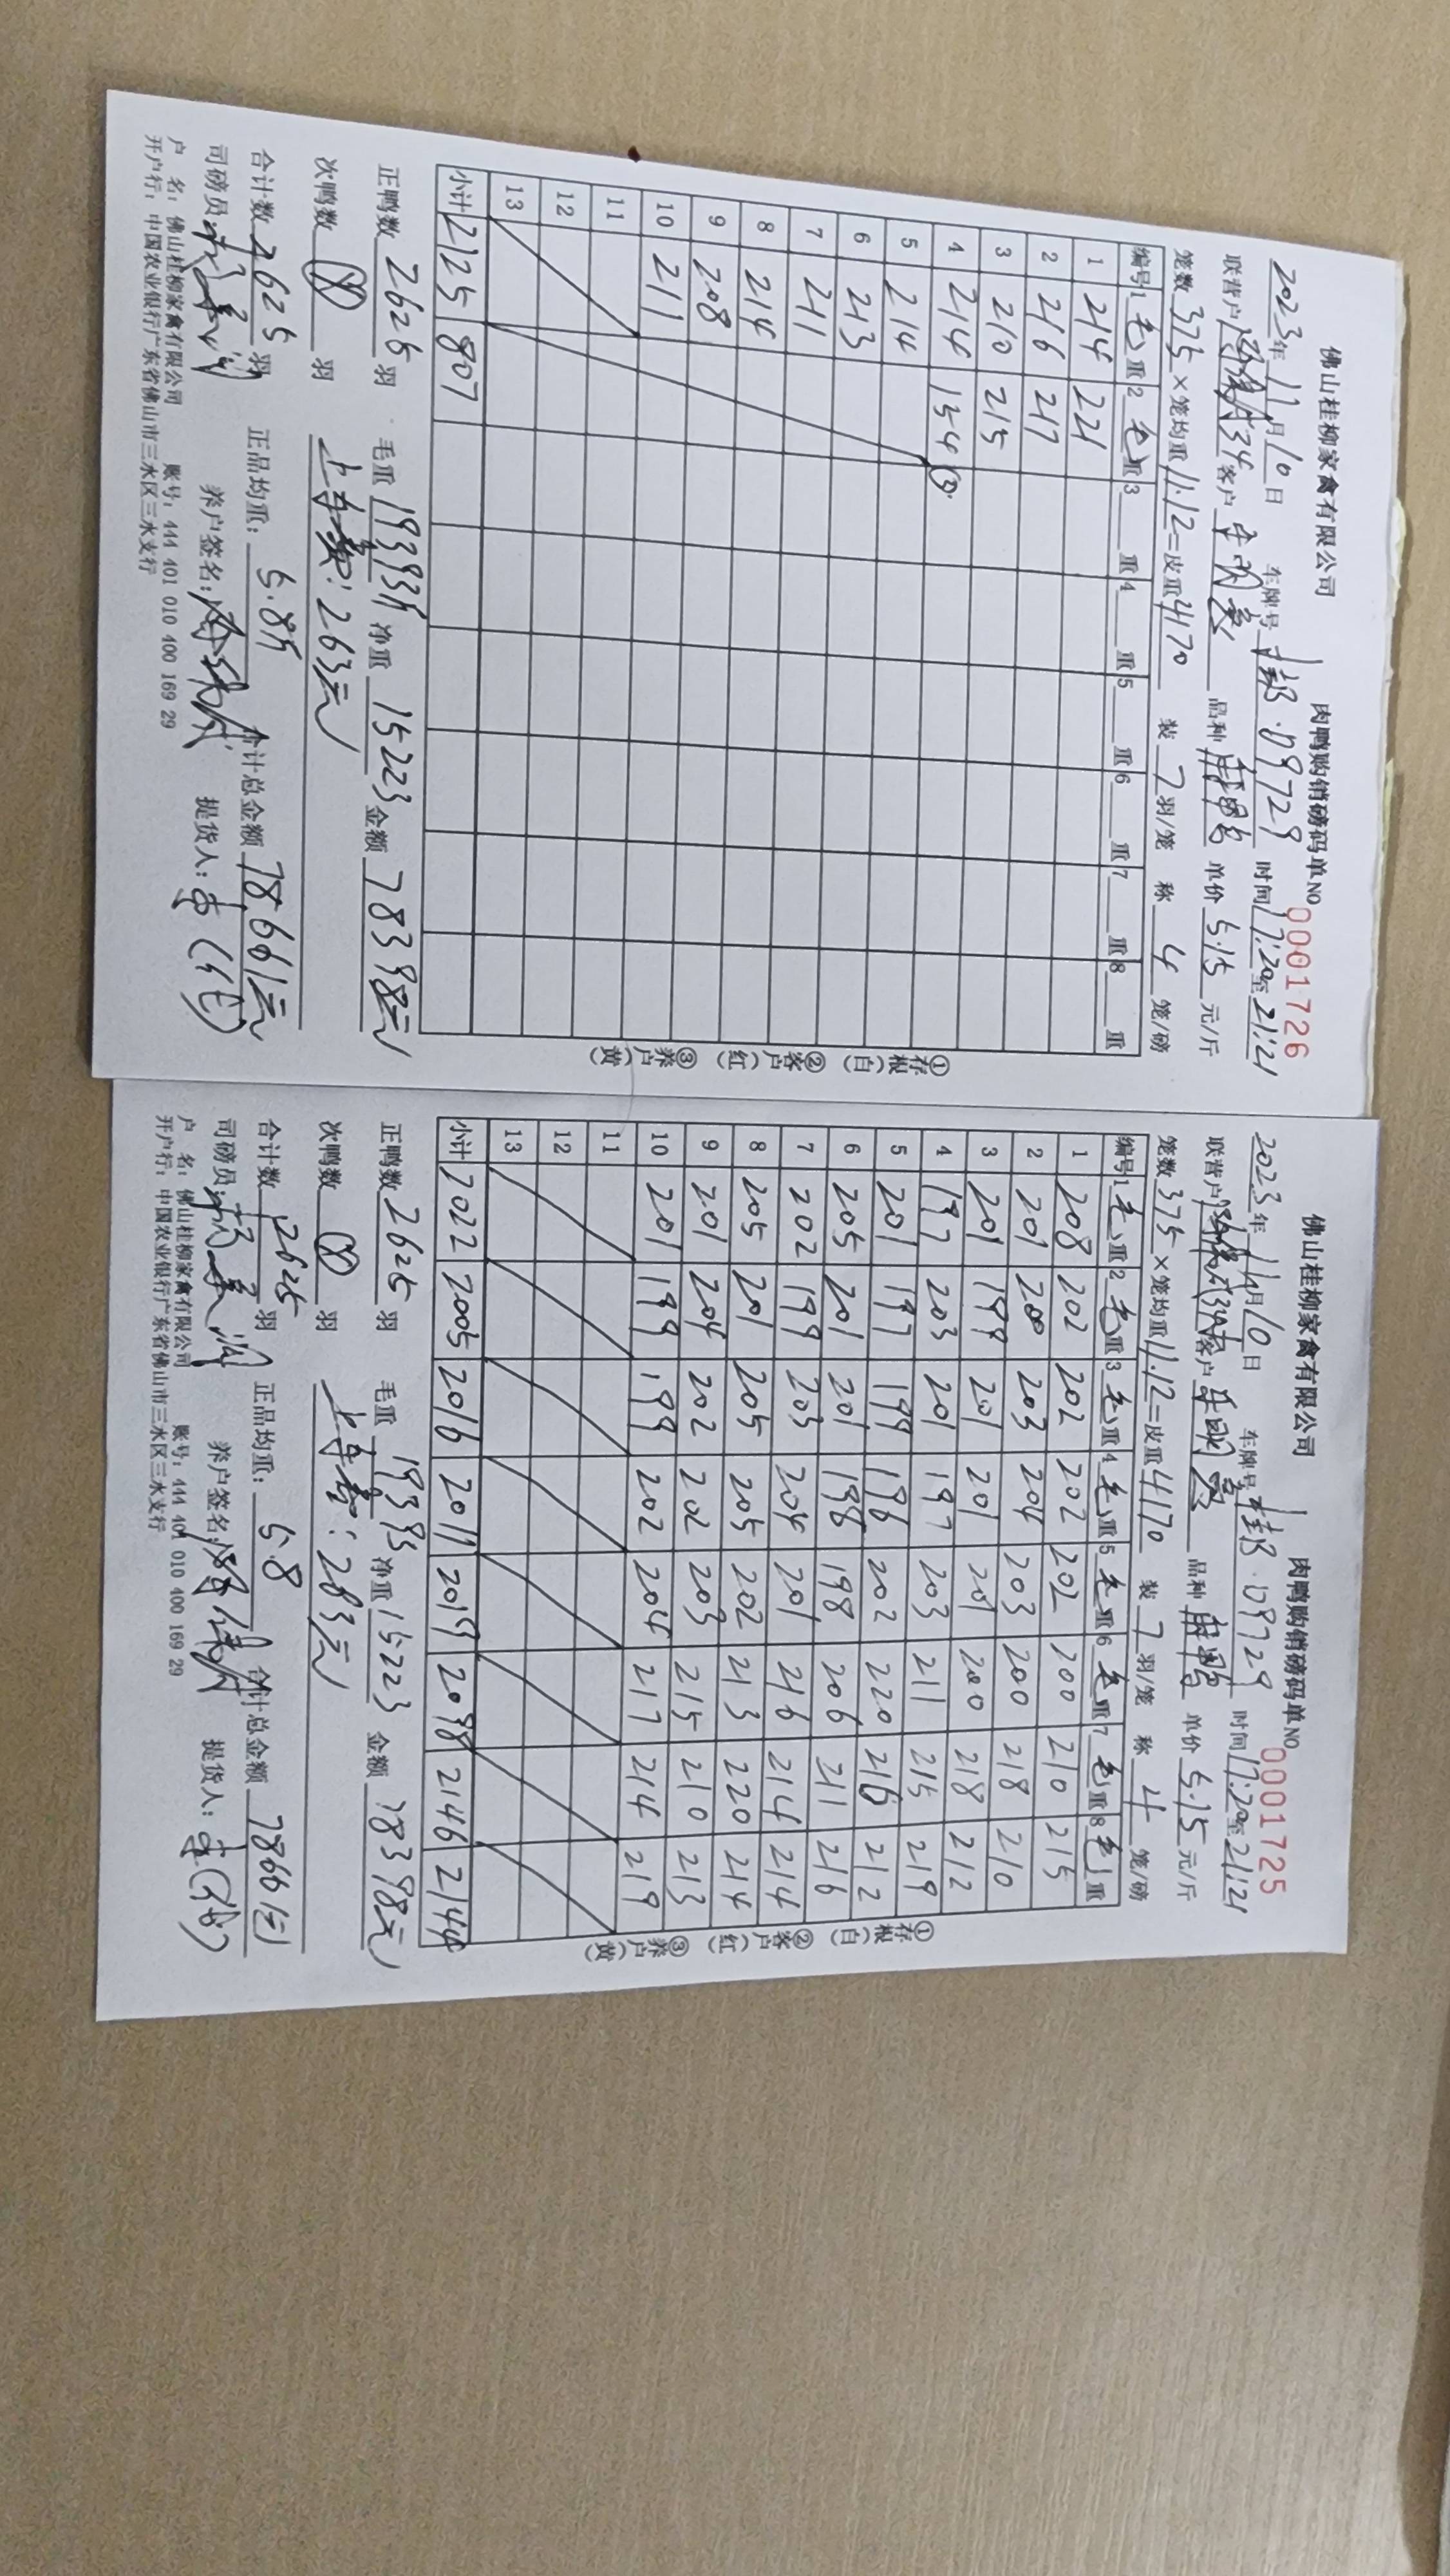 佛山桂柳家禽有限公司
肉鸭购销磅码单 NO 0001726
2023年11月10日 车牌号 D9729 时间17:20至21:21
联营户 客户 品种 单价5.15元/斤
笼数375×笼均重11.12=皮重4170 装7羽/笼 称4笼/磅
编号 1毛重 2毛重 3 重 4 重 5 重 6 重 7 重 8 重
1 214 221
2 216 217
3 210 215
4 214 154③
5 214
6 213
7 211
8 214
9 208
10 211
11
12
13
小计 2125 807
①存根(白) ②客户(红) ③养户(黄)
正鸭数2625羽 毛重19393斤 净重15223 金额78398元
次鸭数 羽 263元
合计数2625羽 正品均重:5.8斤 合计总金额78661元
司磅员: 养户签名: 提货人:
户 名:佛山桂柳家禽有限公司 账号:444 401 010 400 169 29
开户行:中国农业银行广东省佛山市三水区三水支行
佛山桂柳家禽有限公司
肉鸭购销磅码单 NO 0001725
2023年11月10日 车牌号 D9729 时间17:20至21:21
联营户 客户 品种 单价5.15元/斤
笼数375×笼均重11.12=皮重4170 装7羽/笼 称4笼/磅
编号 1毛重 2毛重 3毛重 4毛重 5毛重 6毛重 7毛重 8毛重
1 208 202 202 202 202 200 210 215
2 201 200 203 204 203 200 218 210
3 201 199 201 201 201 200 218 212
4 197 203 201 197 203 211 215 219
5 201 197 199 196 202 220 216 212
6 205 201 201 198 198 206 211 216
7 202 199 203 204 201 216 214 214
8 205 201 205 205 202 213 220 214
9 201 204 202 202 203 215 210 213
10 201 199 199 202 204 217 214 219
11
12
13
小计 2022 2005 2016 2011 2019 2098 2146 2144
①存根(白) ②客户(红) ③养户(黄)
正鸭数2625羽 毛重19393 净重15223 金额78398元
次鸭数 羽 263元
合计数2625羽 正品均重:5.8 合计总金额78661元
司磅员: 养户签名: 提货人:
户 名:佛山桂柳家禽有限公司 账号:444 401 010 400 169 29
开户行:中国农业银行广东省佛山市三水区三水支行